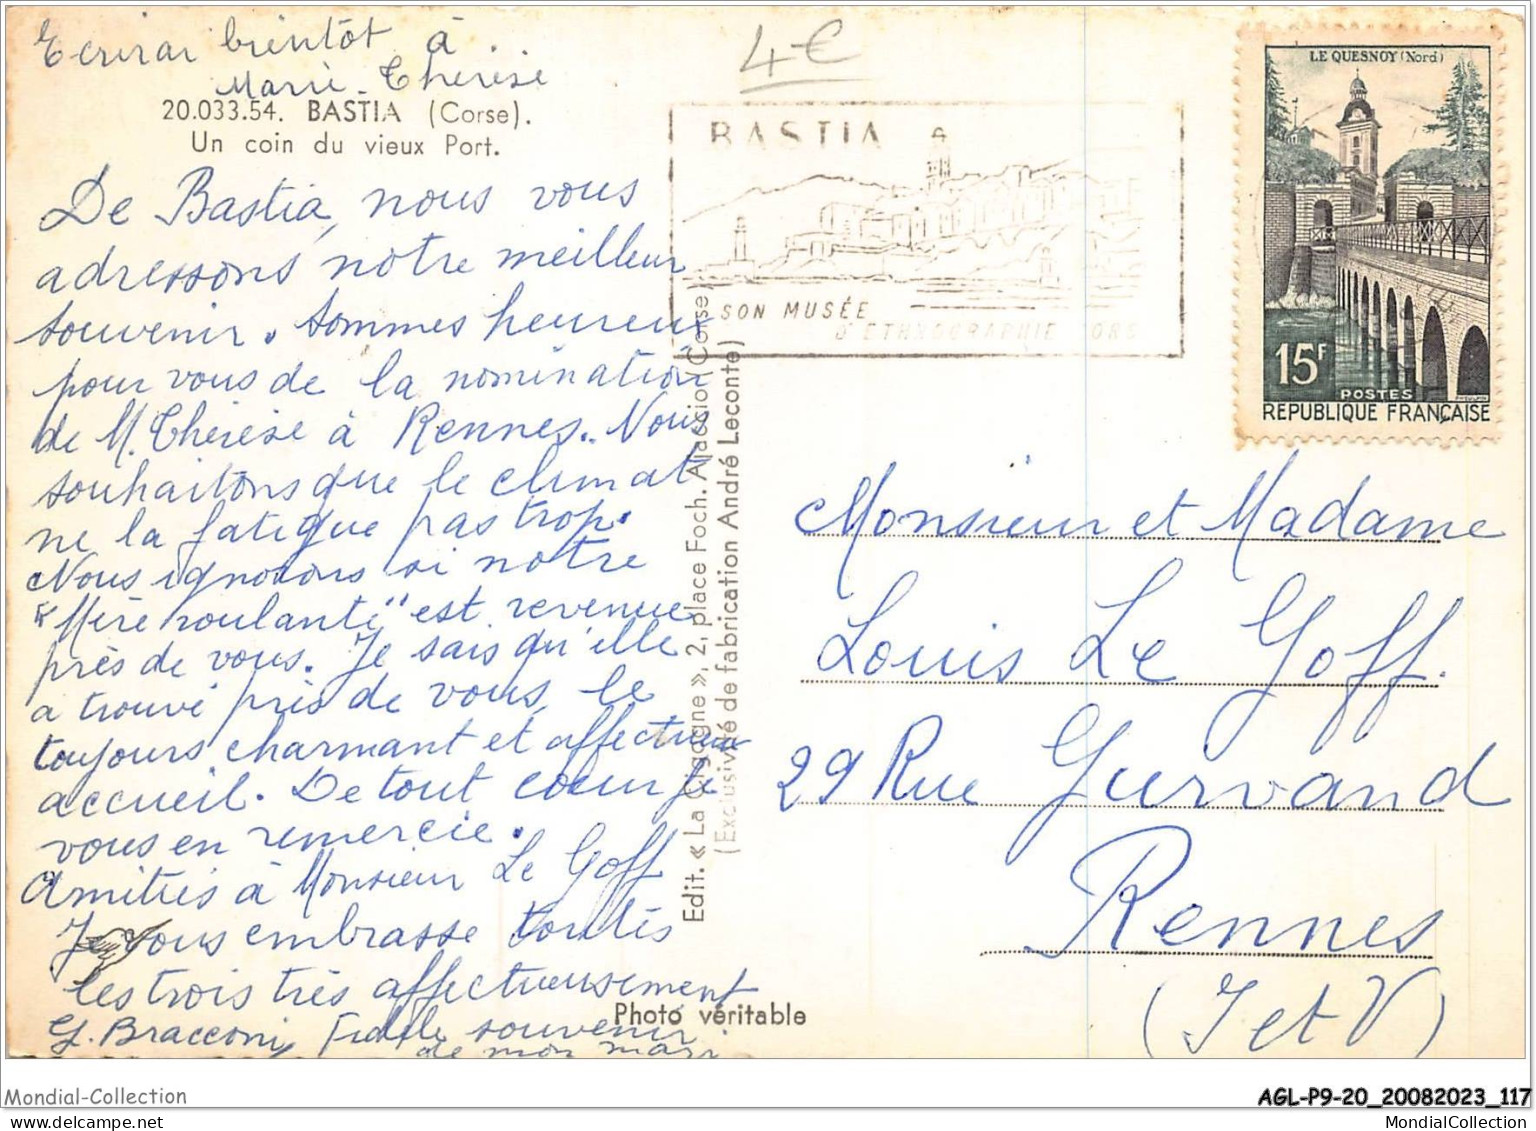 Ecrirai bientôt à ..
Marie-Thérèse
4€
20.033.54. BASTIA (Corse).
Un coin du vieux Port.
De Bastia, nous vous
adressons notre meilleur
souvenir. Sommes heureux
pour vous de la nomination
de M. Thérèse à Rennes. Nous
souhaitons que le climat
ne la fatigue pas trop.
Nous ignorons si notre
"Mère roulante" est revenue
près de vous. Je sais qu'elle
a trouvé près de vous, le
toujours charmant et affectueux
accueil. De tout coeur je
vous en remercie.
Amitiés à Monsieur Le Goff
Je vous embrasse toutes
les trois très affectueusement
G. Bracconi, Fidèle souvenir
de mon mari
Edit. « La Cigogne », 2, place Foch. Ajaccio (Corse)
(Exclusivité de fabrication André Leconte)
Photo véritable
BASTIA
SON MUSÉE
D'ETHNOGRAPHIE CORS
LE QUESNOY (Nord)
15F
POSTES
REPUBLIQUE FRANÇAISE
Monsieur et Madame
Louis Le Goff.
29 Rue Gurvand
Rennes
(I et V)
Mondial-Collection
AGL-P9-20_20082023_117
MondialCollection